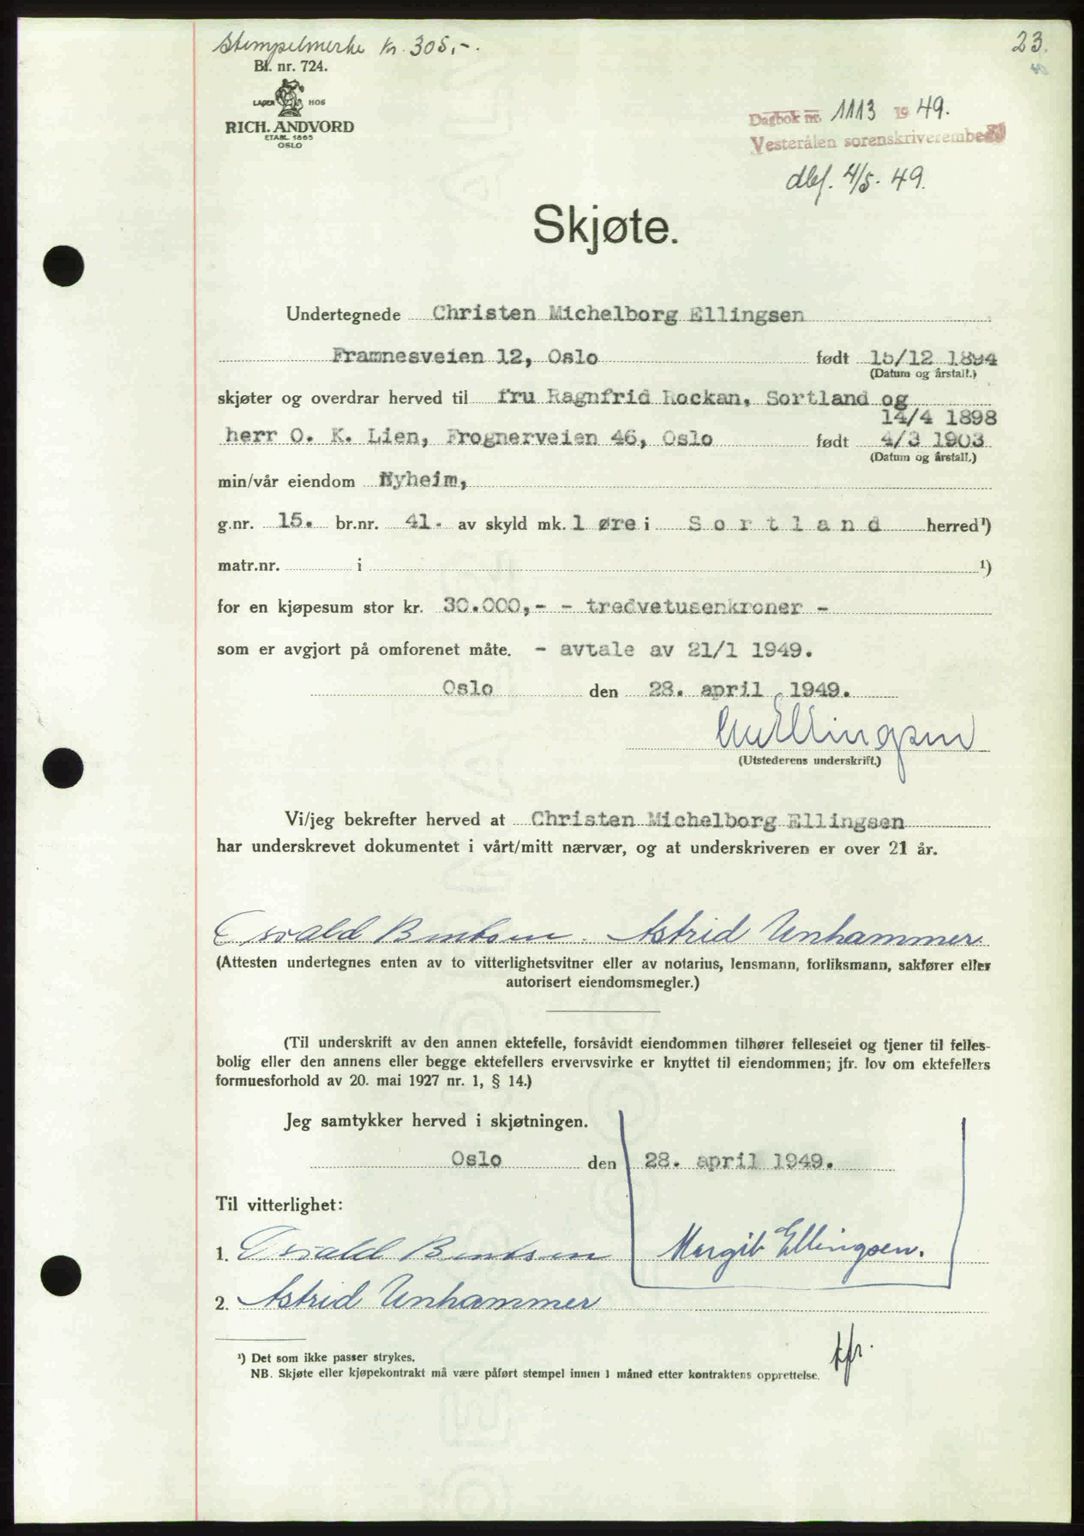 Stempelmerke kr. 305,-.
23.
Bl. nr. 724.
LAGER HOS
RICH. ANDVORD
ETABL. 1865
OSLO
Dagbok nr. 1113 1949.
Vesterålen sorenskriverembed
dbf. 4/5. 49.
Skjøte.
Undertegnede Christen Michelborg Ellingsen
Framnesveien 12, Oslo født 15/12 1894
(Datum og årstall.)
skjøter og overdrar herved til fru Ragnfrid Rockan, Sortland og
14/4 1898
herr O. K. Lien, Frognerveien 46, Oslo født 4/3 1903
(Datum og årstall.)
min/vår eiendom Nyheim,
g.nr. 15. br.nr. 41. av skyld mk. 1 øre i Sortland herred¹)
matr.nr. i ¹)
for en kjøpesum stor kr. 30.000,- - tredvetusenkroner -
som er avgjort på omforenet måte. - avtale av 21/1 1949.
Oslo den 28. april 1949.
Chr Ellingsen
(Utstederens underskrift.)
Vi/jeg bekrefter herved at Christen Michelborg Ellingsen
har underskrevet dokumentet i vårt/mitt nærvær, og at underskriveren er over 21 år.
Osvald Bentsen. Astrid Unhammer
(Attesten undertegnes enten av to vitterlighetsvitner eller av notarius, lensmann, forliksmann, sakfører eller
autorisert eiendomsmegler.)
(Til underskrift av den annen ektefelle, forsåvidt eiendommen tilhører felleseiet og tjener til felles-
bolig eller den annens eller begge ektefellers ervervsvirke er knyttet til eiendommen; jfr. lov om ektefellers
formuesforhold av 20. mai 1927 nr. 1, § 14.)
Jeg samtykker herved i skjøtningen.
Oslo den 28. april 1949.
Til vitterlighet:
1. Osvald Bentsen Margit Ellingsen.
2. Astrid Unhammer
¹) Det som ikke passer strykes.
NB. Skjøte eller kjøpekontrakt må være påført stempel innen 1 måned etter kontraktens opprettelse.